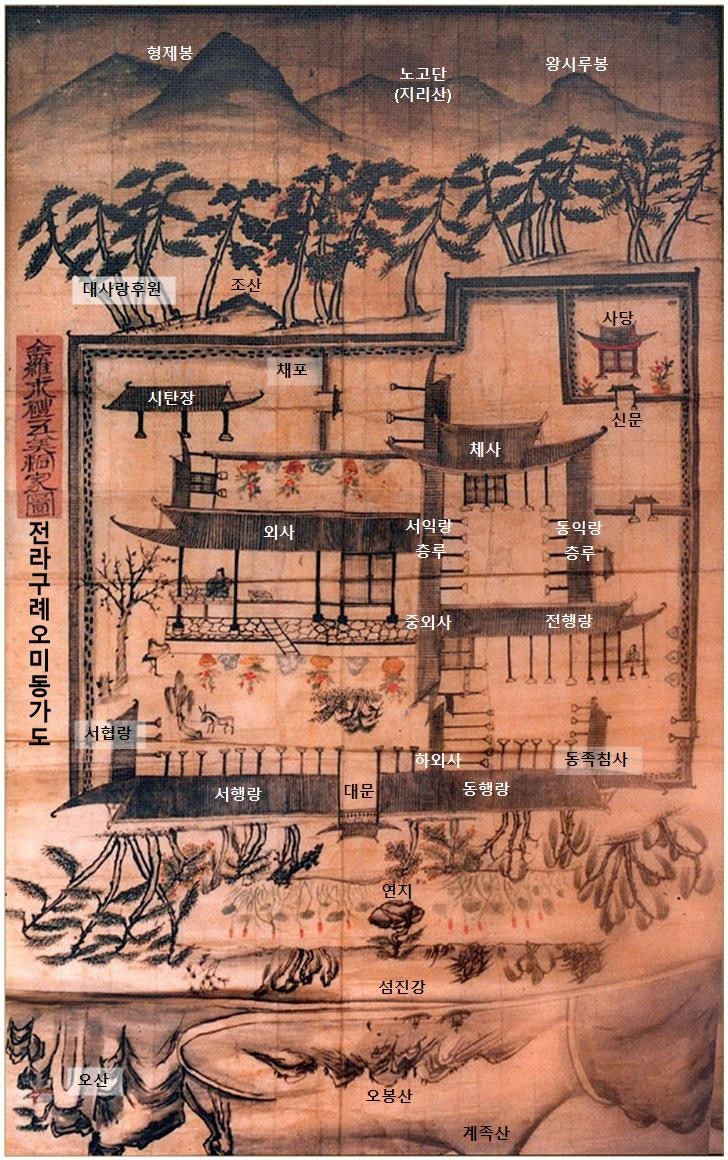 형제봉
노고단
(지리산)
왕시루봉
대사랑후원
조산
사당
채포
시탄장
신문
체사
全羅求禮五美洞家圖
전라구례오미동가도
외사
서익랑
층루
동익랑
층루
중외사
전행랑
서협랑
하외사
동족침사
서행랑
대문
동행랑
연지
섬진강
오산
오봉산
계족산